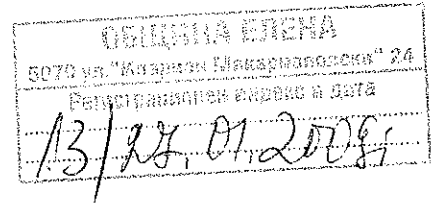 ОБЩИНА ЕЛЕНА
5070 ул."Иларион Макариополски" 24
Регистрационен индекс и дата
13/27.01.2009г.